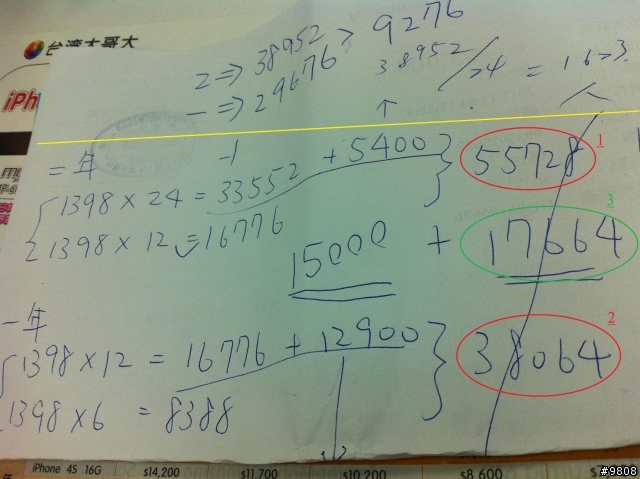 台湾大哥大
iPh
二⇒ 38952 > 9276
一⇒ 29676
38952/24 = 1623.
↑
二年
-1
1398 × 24 = 33552 + 5400 } 55728 1
1398 × 12 = 16776
15000 + 17664 3
一年
1398 × 12 = 16776 + 12900 } 38064 2
1398 × 6 = 8388
iPhone 4S 16G $14,200 $11,700 $10,200 $8,600
#9808